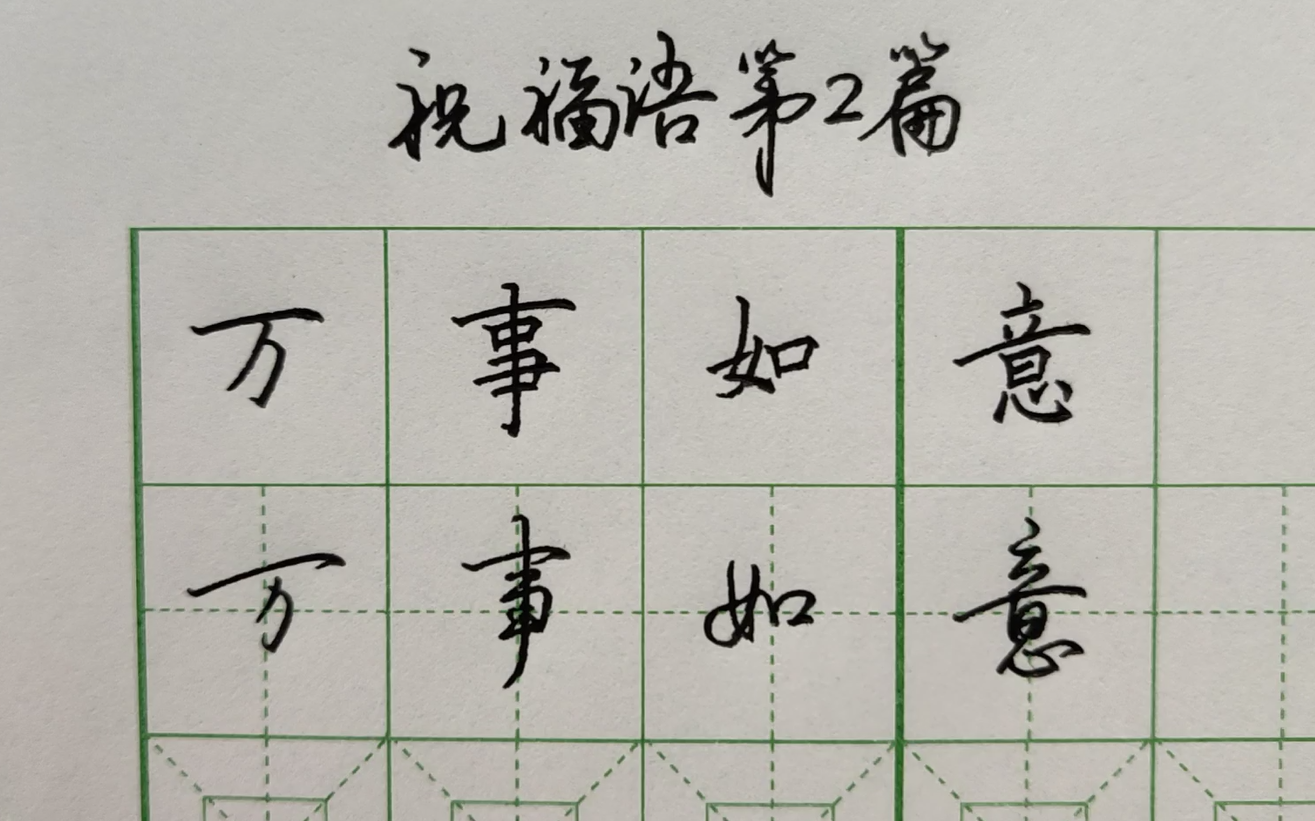 祝福语第2篇
万事如意
万事如意